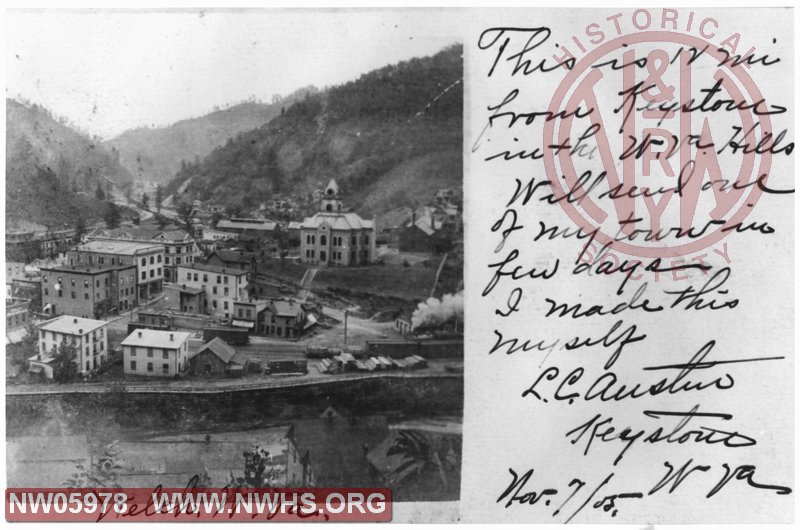 This is 12 mi
from Keystone
in the W.Va. Hills
Will send one
of my town in
few days
I made this
myself
L.C. Austin
Keystone
W Va
Nov. 7/05.
HISTORICAL
N&W
RY
SOCIETY
Welch W.Va.
NW05978 WWW.NWHS.ORG